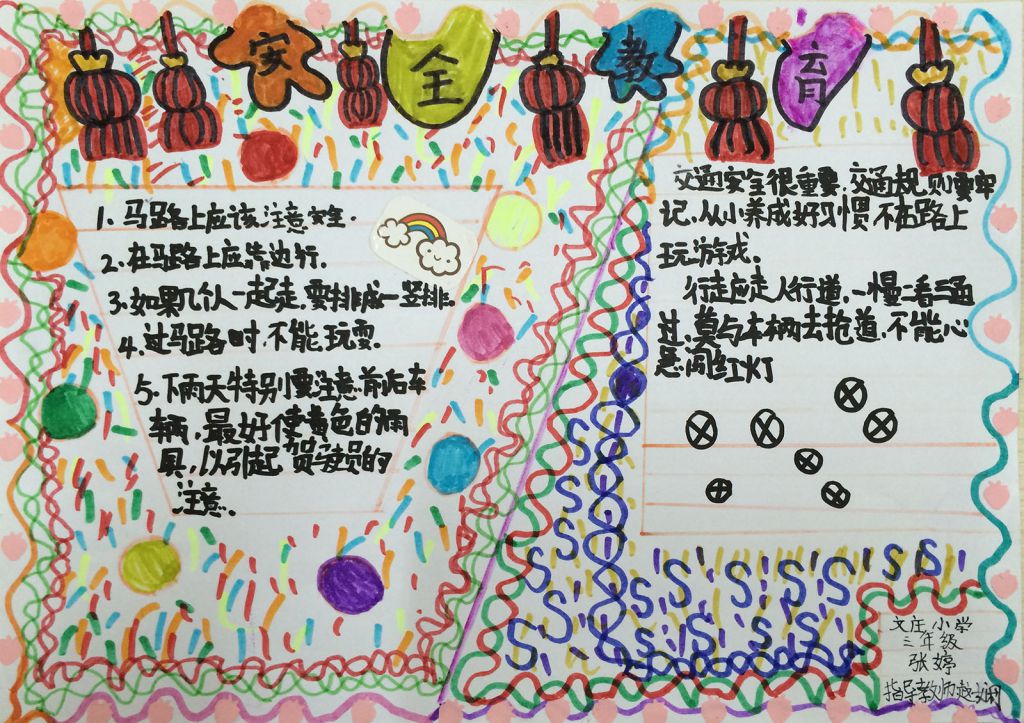 安全教育
1. 马路上应该注意安全.
2. 在马路上应靠边行.
3. 如果几个人一起走,要排成一竖排.
4. 过马路时,不能玩耍.
5. 下雨天特别要注意前后车
辆,最好使黄色的雨
具,以引起驾驶员的
注意.
交通安全很重要,交通规则要牢
记,从小养成好习惯,不在路上
玩游戏.
行走应走人行道,一慢二看三通
过,莫与车辆去抢道,不能心
急闯红灯
文庄小学
三年级
张婷
指导教师赵娴